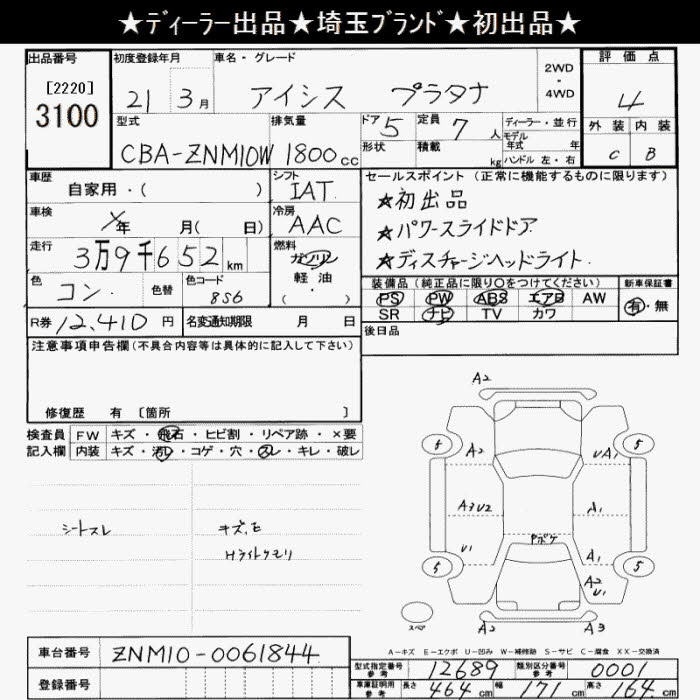 ★ディーラー出品★埼玉ブランド★初出品★
出品番号 初度登録年月 車名・グレード 2WD・4WD 評価点
[2220]
3100
21 3月 アイシス プラタナ 4
型式 排気量 ドア 5 定員 7人 ディーラー・並行 外装 内装
モデル年式 年
CBA-ZNM10W 1800cc 形状 積載 kg ハンドル 左・右 C B
車歴 自家用・( ) シフト IAT セールスポイント (正常に機能するものに限ります)
★初出品
車検 年 月( 日) 冷房 AAC ★パワースライドドア
走行 3万9千652km 燃料 ガソリン 軽油・( ) ★ディスチャージヘッドライト
色 コン 色替 色コード 8S6 装備品(純正品に限り○をつけてください) 新車保証書
PS PW ABS エアB AW 有・無
SR ナビ TV カワ
R券 12,410円 名変通知期限 月 日 後日品
注意事項申告欄(不具合内容等は具体的に記入して下さい)
修復歴 有 [箇所 ]
検査員 FW キズ・飛石・ヒビ割・リペア跡・×要
記入欄 内装 キズ・汚レ・コゲ・穴・スレ・キレ・破レ
シートスレ キズ,E
Hライトクモリ
A2
5 A2 UA1 5
A3U2 A1
U1 Pボケ A1
5 A2 U1 5
スペア A2 A3
A-キズ E-エクボ U-凹み W-補修跡 S-サビ C-腐食 XX-交換済
車台番号 ZNM10-0061844
型式指定番号参考 12689 類別区分番号参考 0001
登録番号 車庫証明用参考 長さ 464cm 幅 171cm 高さ 164cm